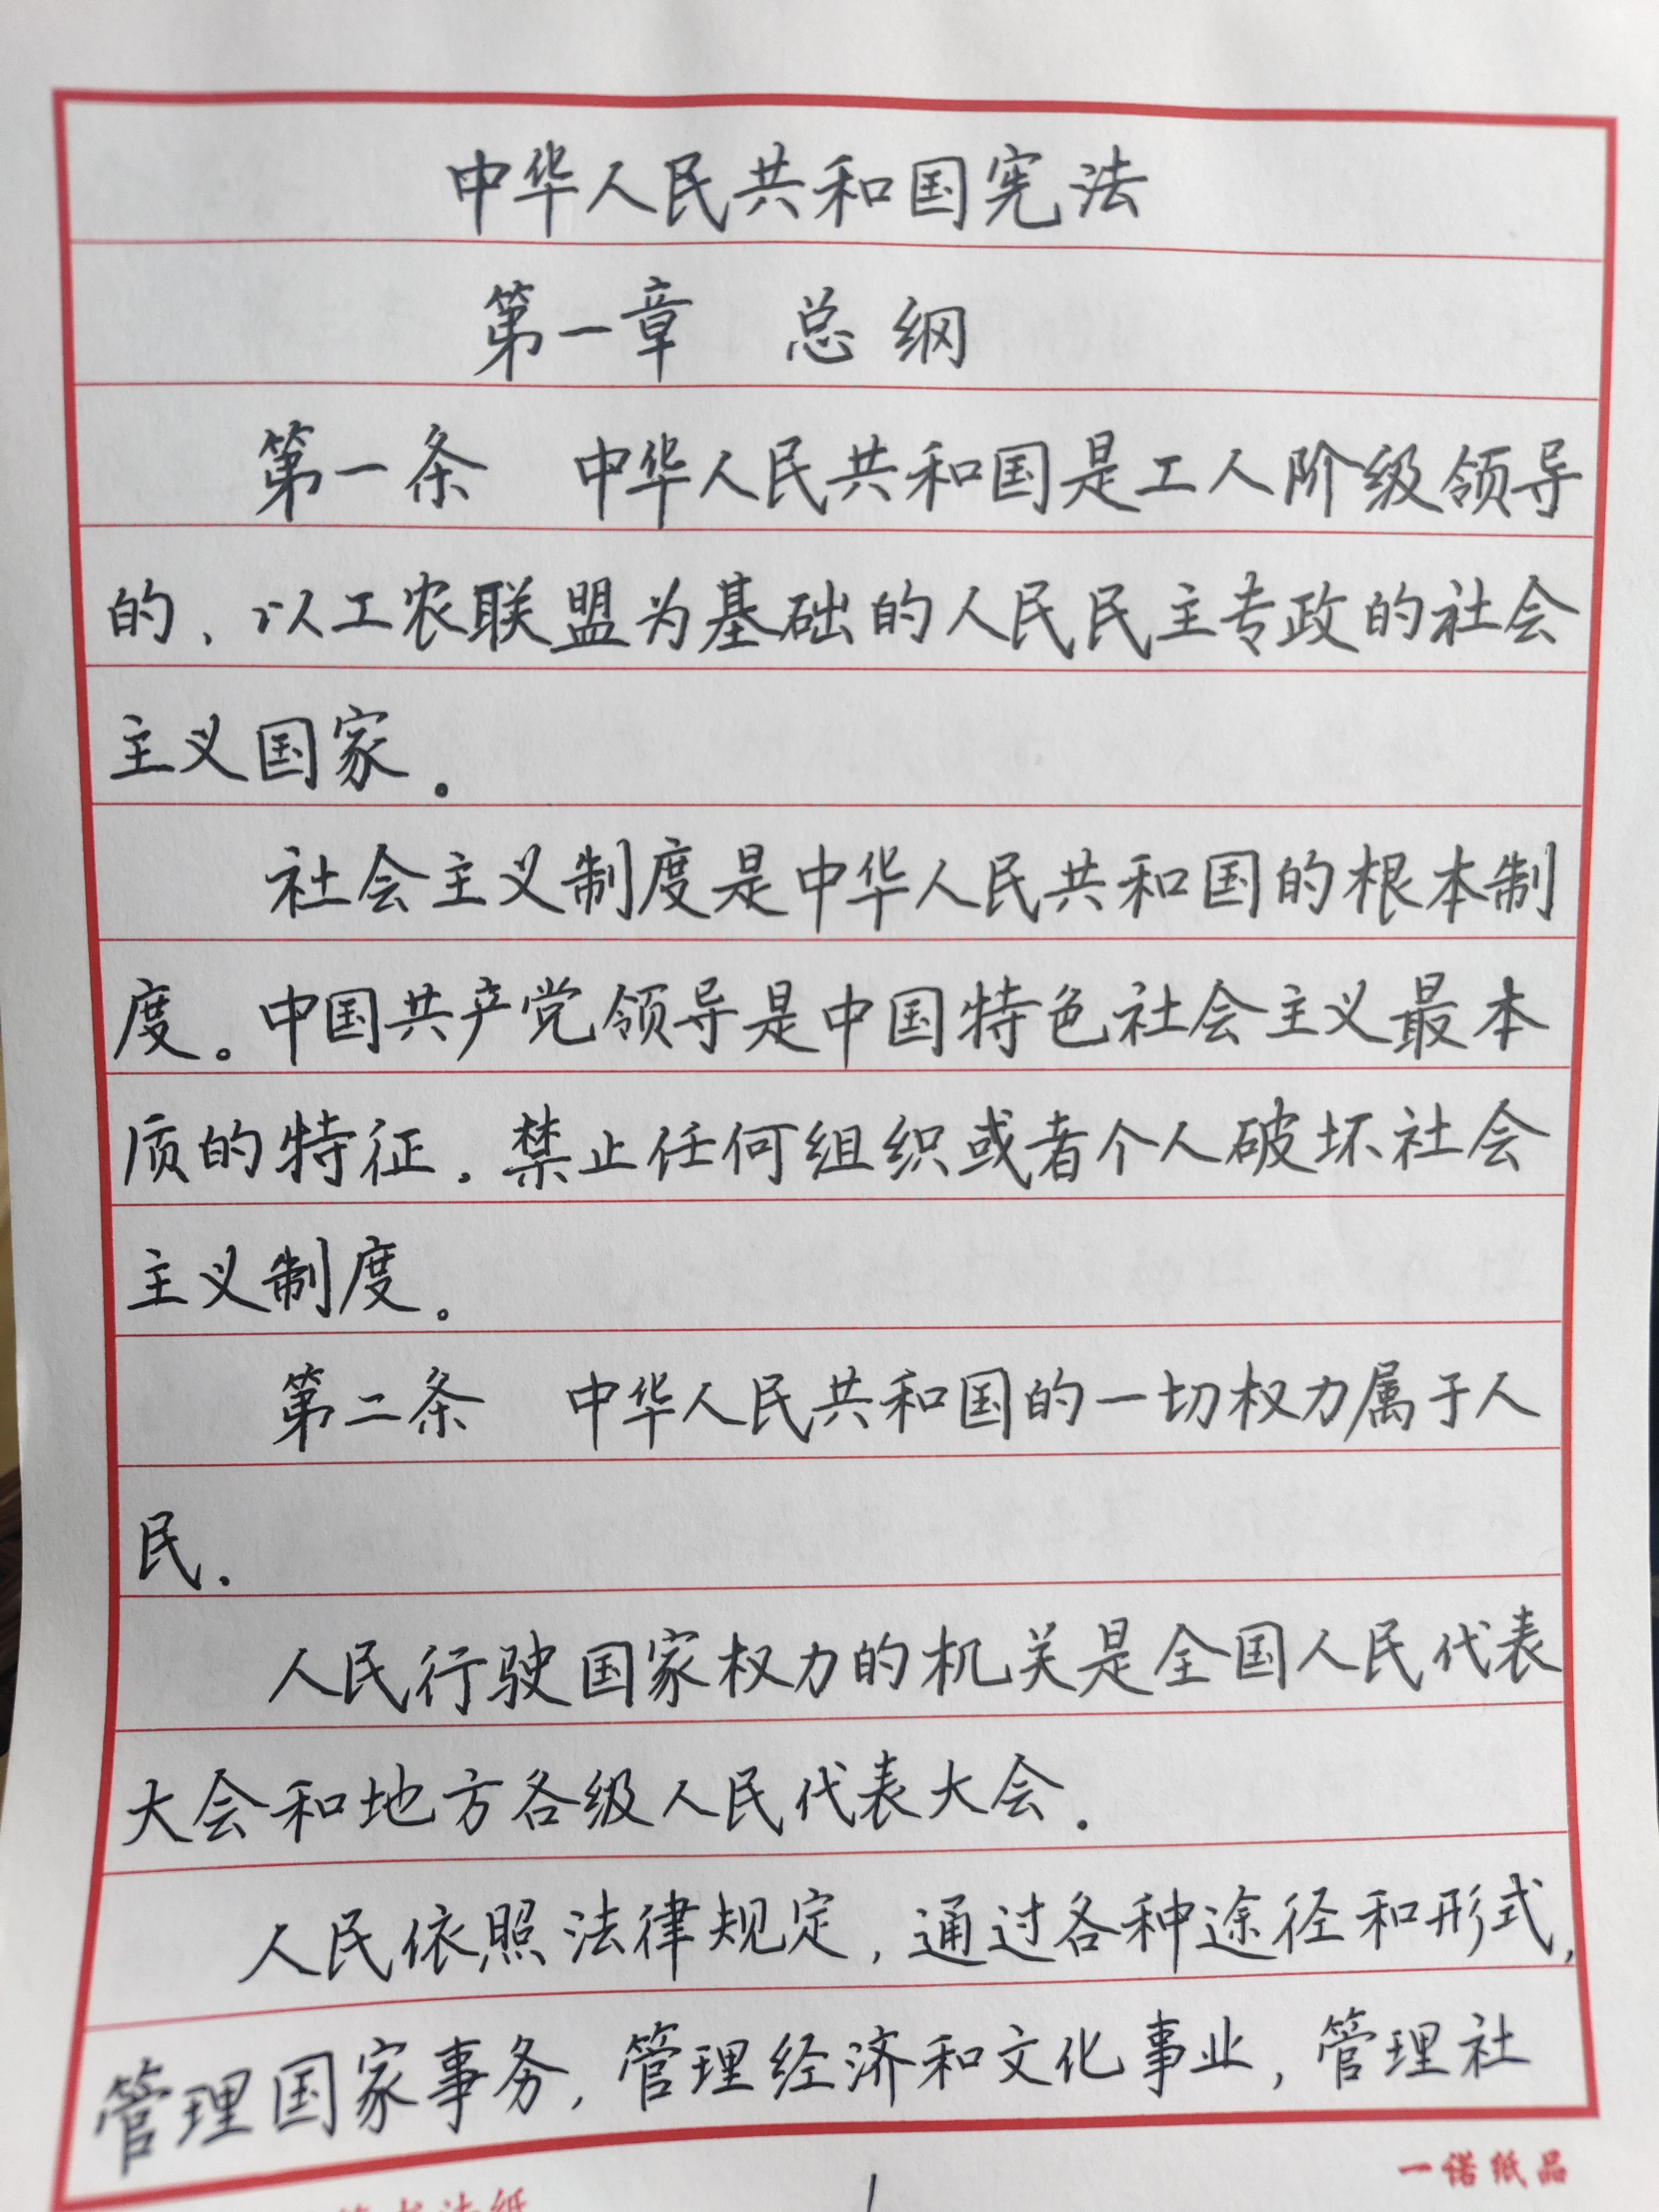 中华人民共和国宪法
第一章 总纲
第一条 中华人民共和国是工人阶级领导
的、以工农联盟为基础的人民民主专政的社会
主义国家。
社会主义制度是中华人民共和国的根本制
度。中国共产党领导是中国特色社会主义最本
质的特征。禁止任何组织或者个人破坏社会
主义制度。
第二条 中华人民共和国的一切权力属于人
民.
人民行驶国家权力的机关是全国人民代表
大会和地方各级人民代表大会.
人民依照法律规定,通过各种途径和形式,
管理国家事务,管理经济和文化事业,管理社
一诺纸品